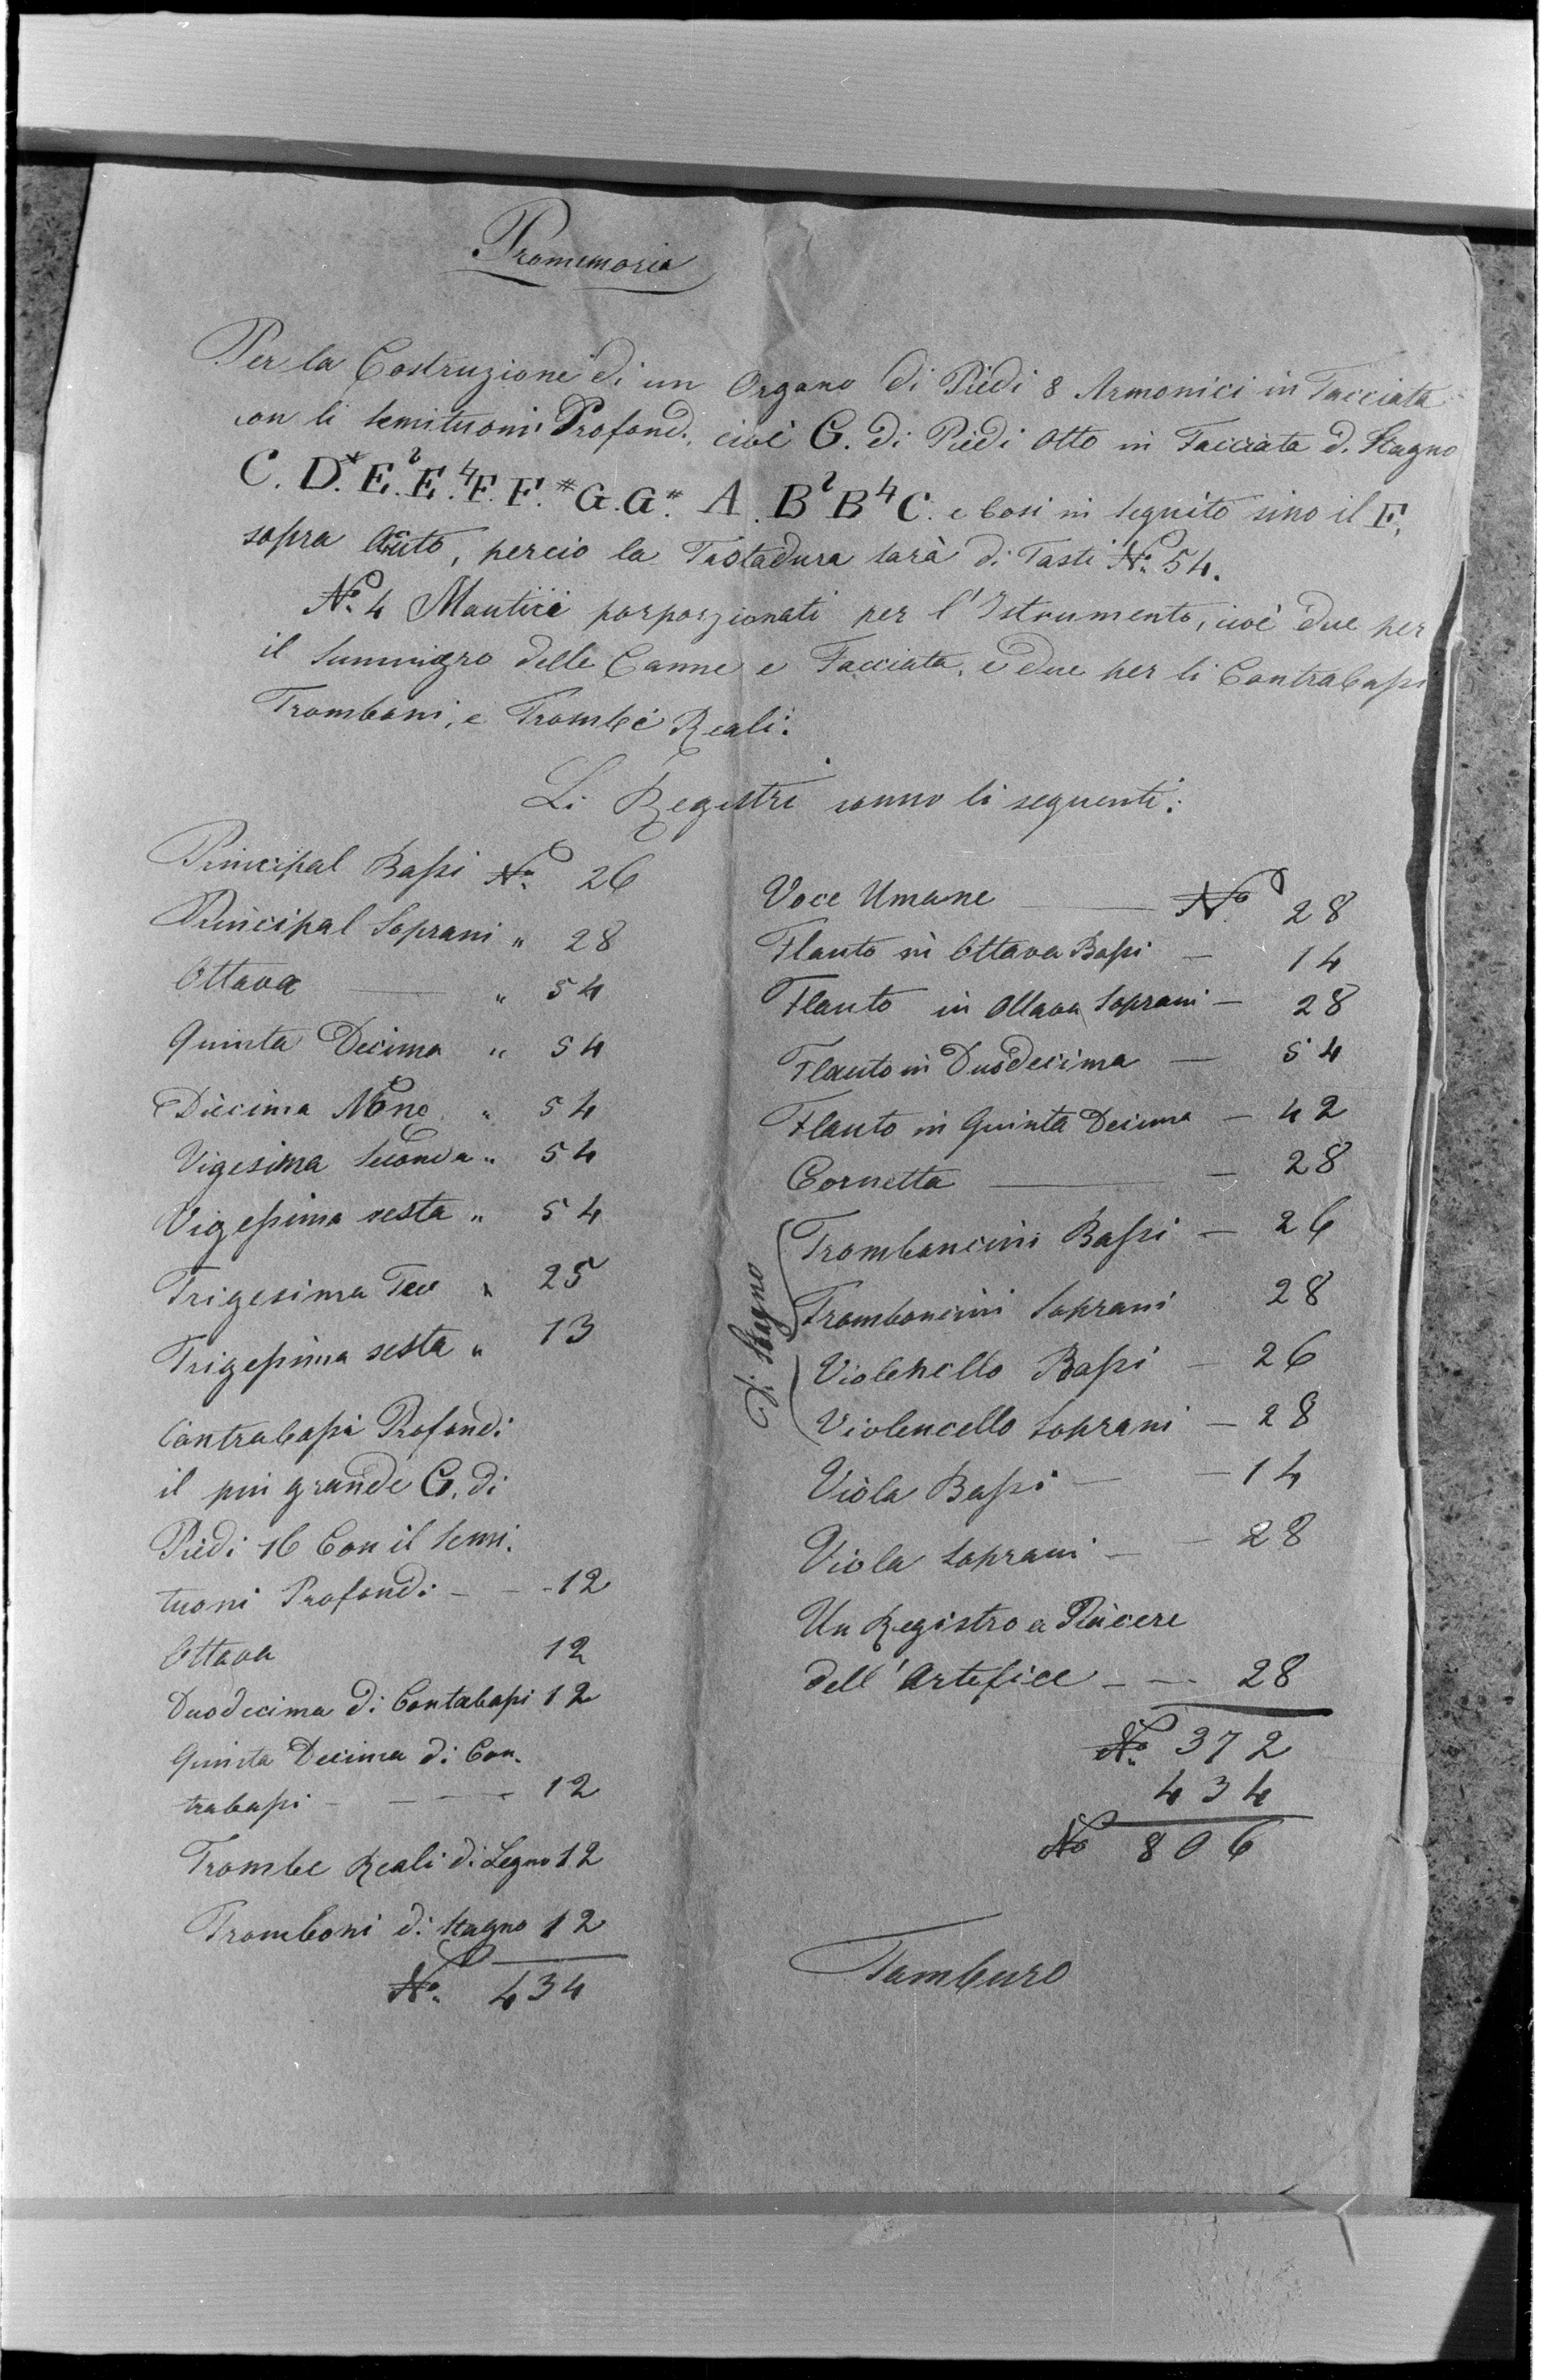 Promemoria
Per la Costruzione di un Organo di Piedi 8 Armonici in Facciata
con li semituoni Profondi, cioè C. di Piedi Otto in Facciata di Stagno
C. D.# E.♭ E.♮ F. F.# G. G.# A. B♭ B♮ C. e Cosi in seguito sino il F,
sopra Acuto, percio la Tastadura sarà di Tasti No. 54.
No. 4 Mantici porporzionati per l'Istrumento, cioè due per
il Summigro delle Canne e Facciata, e due per li Contrabassi
Tromboni, e Trombe Reali.
Li Registri sonno li seguenti:
Principal Bassi No. 26
Principal Soprani " 28
Ottava " 54
Quinta Decima " 54
Diecima Nona " 54
Vigesima Seconda " 54
Vigessima sesta " 54
Trigesima Ter " 25
Trigessima sesta " 13
Contrabassi Profondi
il piu grande C. di
Piedi 16 Con il Semi.
tuoni Profondi - - - 12
Ottava 12
Duodecima di Contabassi 12
Quinta Decima di Con.
trabassi - - - - 12
Trombe Reali di Legno 12
Tromboni di Stagno 12
No. 434
Voce Umane No. 28
Flauto in Ottava Bassi - 14
Flauto in Ottava Soprani - 28
Flauto in Duodecima - 54
Flauto in Quinta Decima - 42
Cornetta - 28
di Stagno
Tromboncini Bassi - 26
Tromboncini Soprani 28
Violencello Bassi - 26
Violencello Soprani - 28
Viola Bassi - - 14
Viola Soprani - - 28
Un Registro a Piacere
dell'Artefice - - - 28
No. 372
434
No 806
Tamburo